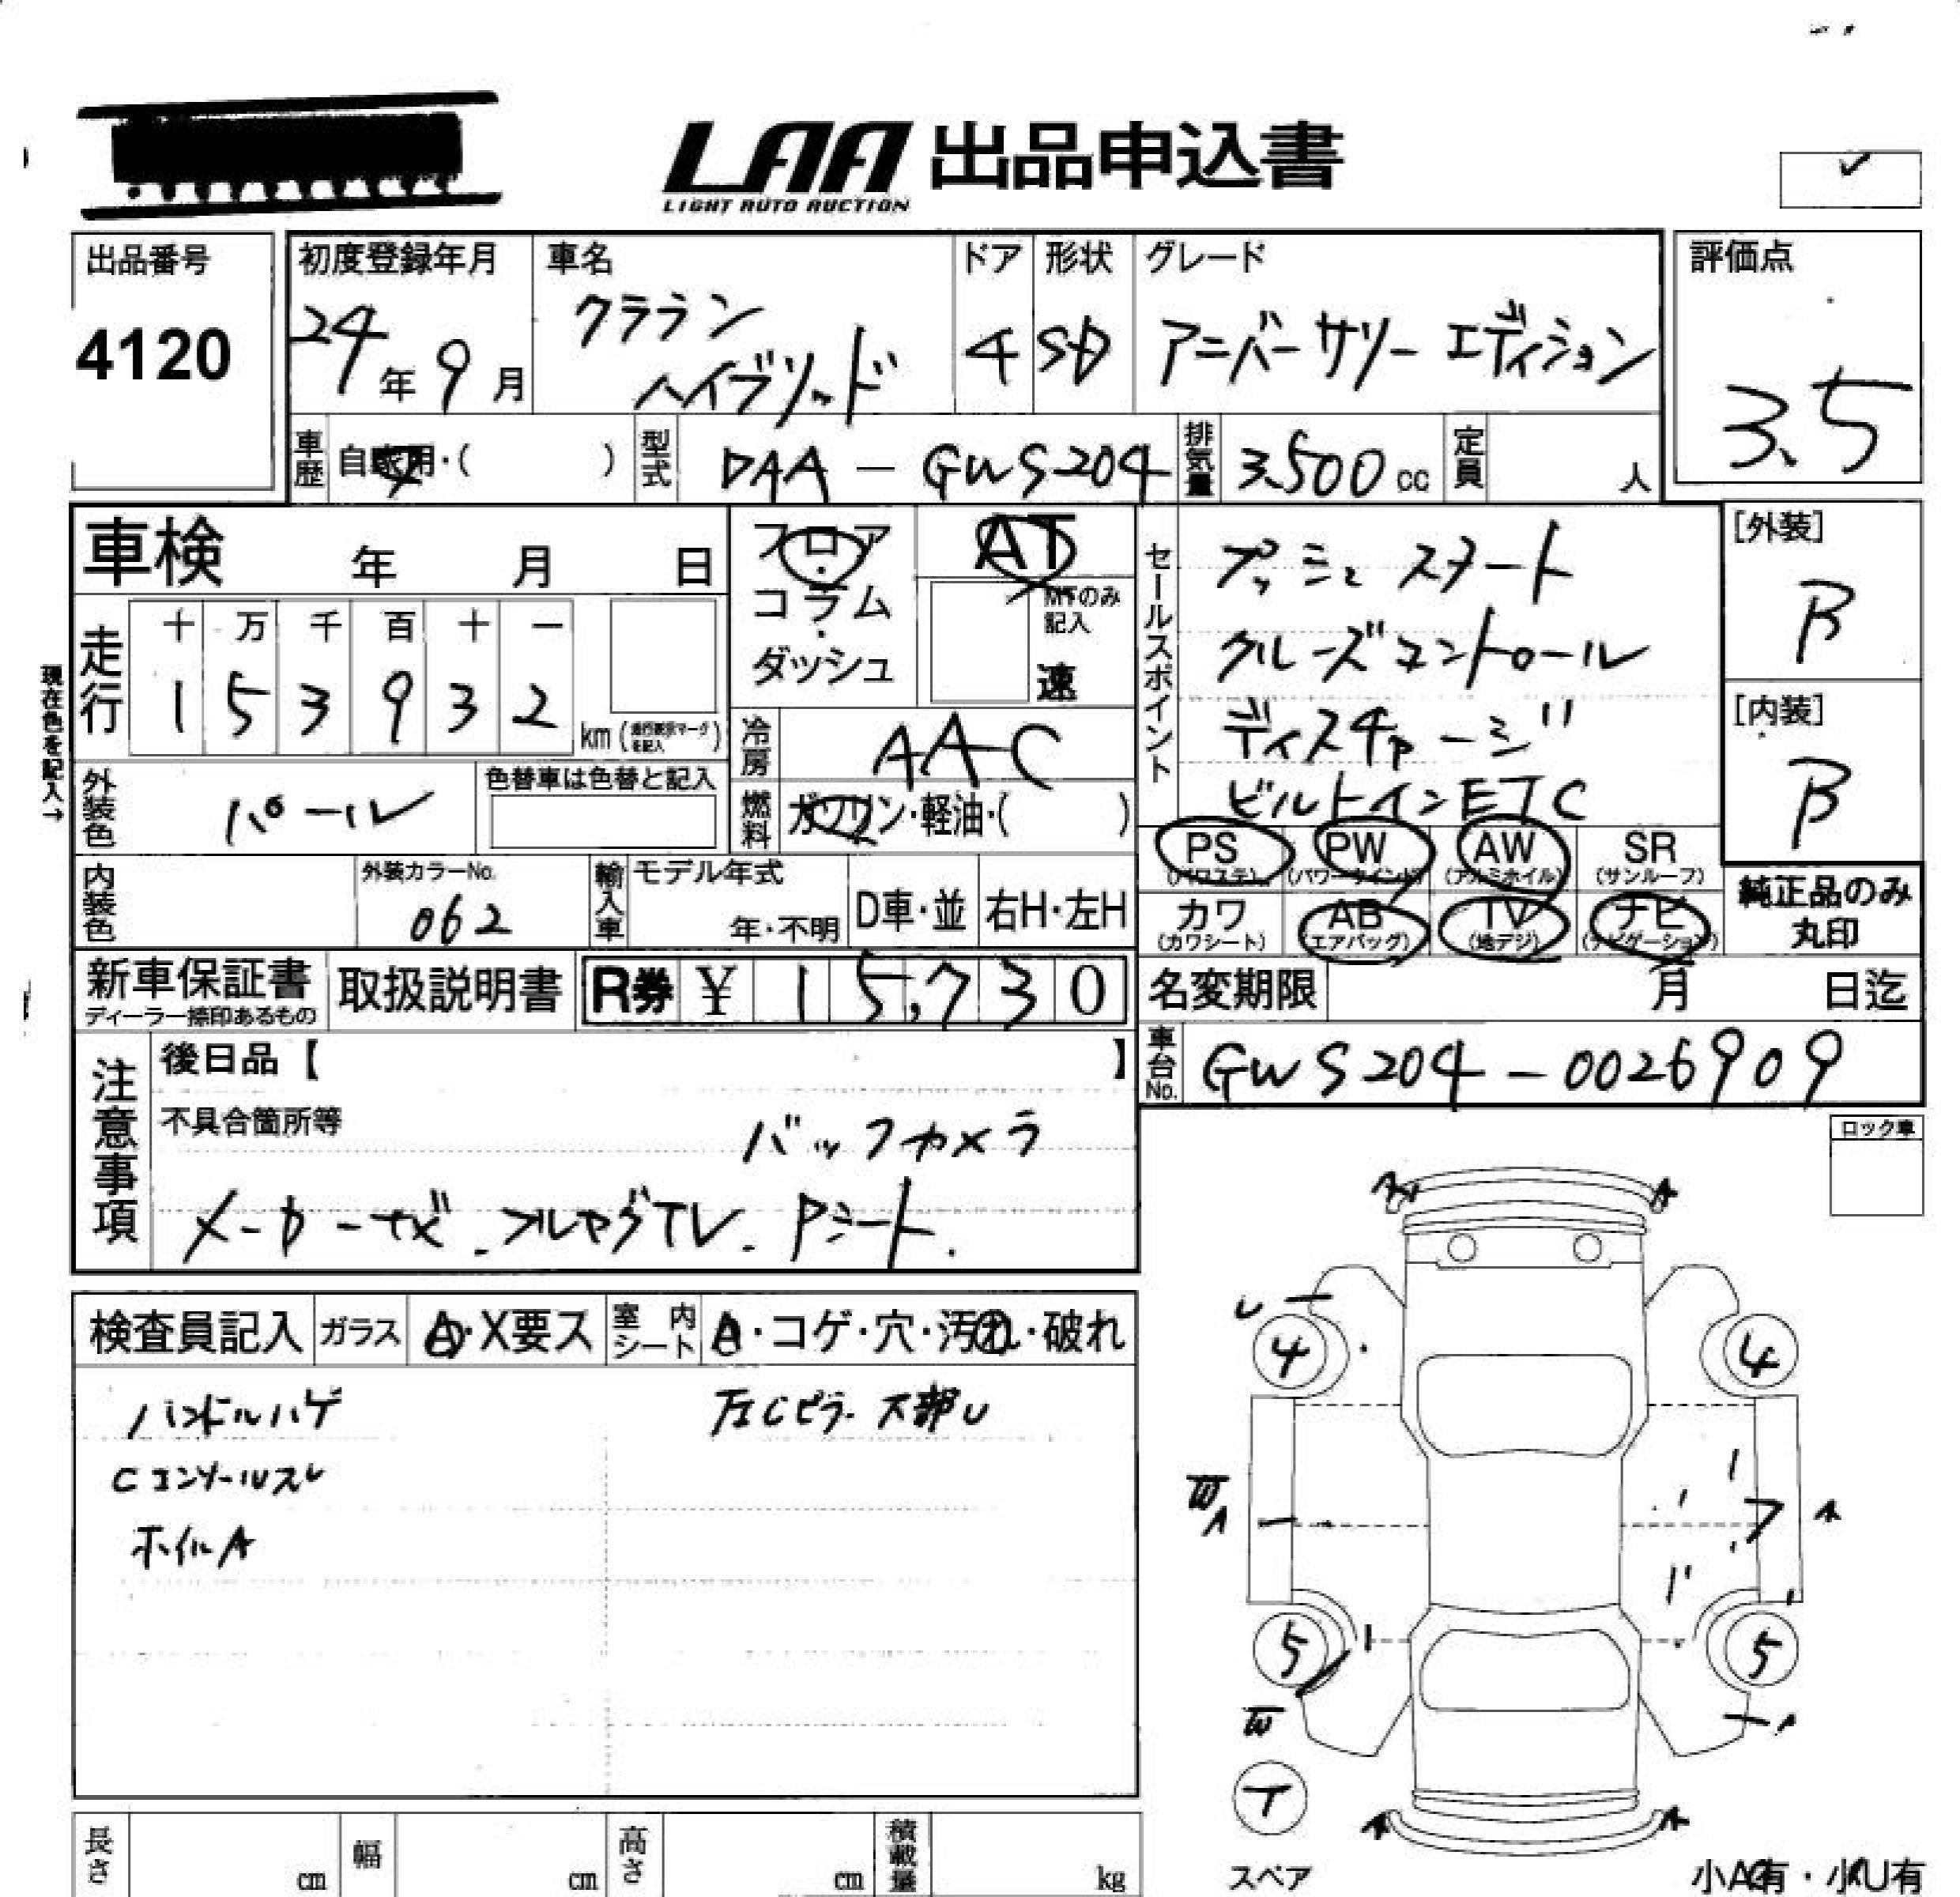 LAA 出品申込書
LIGHT AUTO AUCTION
出品番号
4120
初度登録年月
24年 9月
車名
クラウン
ハイブリッド
ドア
4
形状
SD
グレード
アニバーサリー エディション
評価点
3.5
車歴
自家用・( )
型式
DAA - GWS204
排気量
3.500cc
定員
人
車検 年 月 日
フロア・コラム・ダッシュ
AT
MTのみ記入
速
セールスポイント
プッシュ スタート
クルーズコントロール
ディスチャージ
ビルトインETC
[外装]
B
[内装]
B
現在色を記入→
走行
十 万 千 百 十 一
1 5 3 9 3 2
km(走行表示マークを記入)
冷房
AAC
外装色
パール
色替車は色替と記入
燃料
ガソリン・軽油・( )
PS
(パワステ)
PW
(パワーウインド)
AW
(アルミホイル)
SR
(サンルーフ)
カワ
(カワシート)
AB
(エアバッグ)
TV
(地デジ)
ナビ
(ナビゲーション)
純正品のみ
丸印
内装色
外装カラーNo.
062
輸入車
モデル年式
年・不明
D車・並
右H・左H
新車保証書
ディーラー捺印あるもの
取扱説明書
R券 ¥ 15,730
名変期限 月 日迄
車台No.
GWS204-0026909
注意事項
後日品【 】
不具合箇所等
バックカメラ
メーカーナビ.フルセグTV.Pシート.
ロック車
検査員記入
ガラス
A・X要ス
室内シート
A・コゲ・穴・汚れ・破れ
ハンドルハゲ
左Cピラー下部U
Cコンソールスレ
ホイルA
A
A
U
4
4
W
A
A
5
5
W
A
T
A
A
スペア
小A有・小U有
長さ cm
幅 cm
高さ cm
積載量 kg